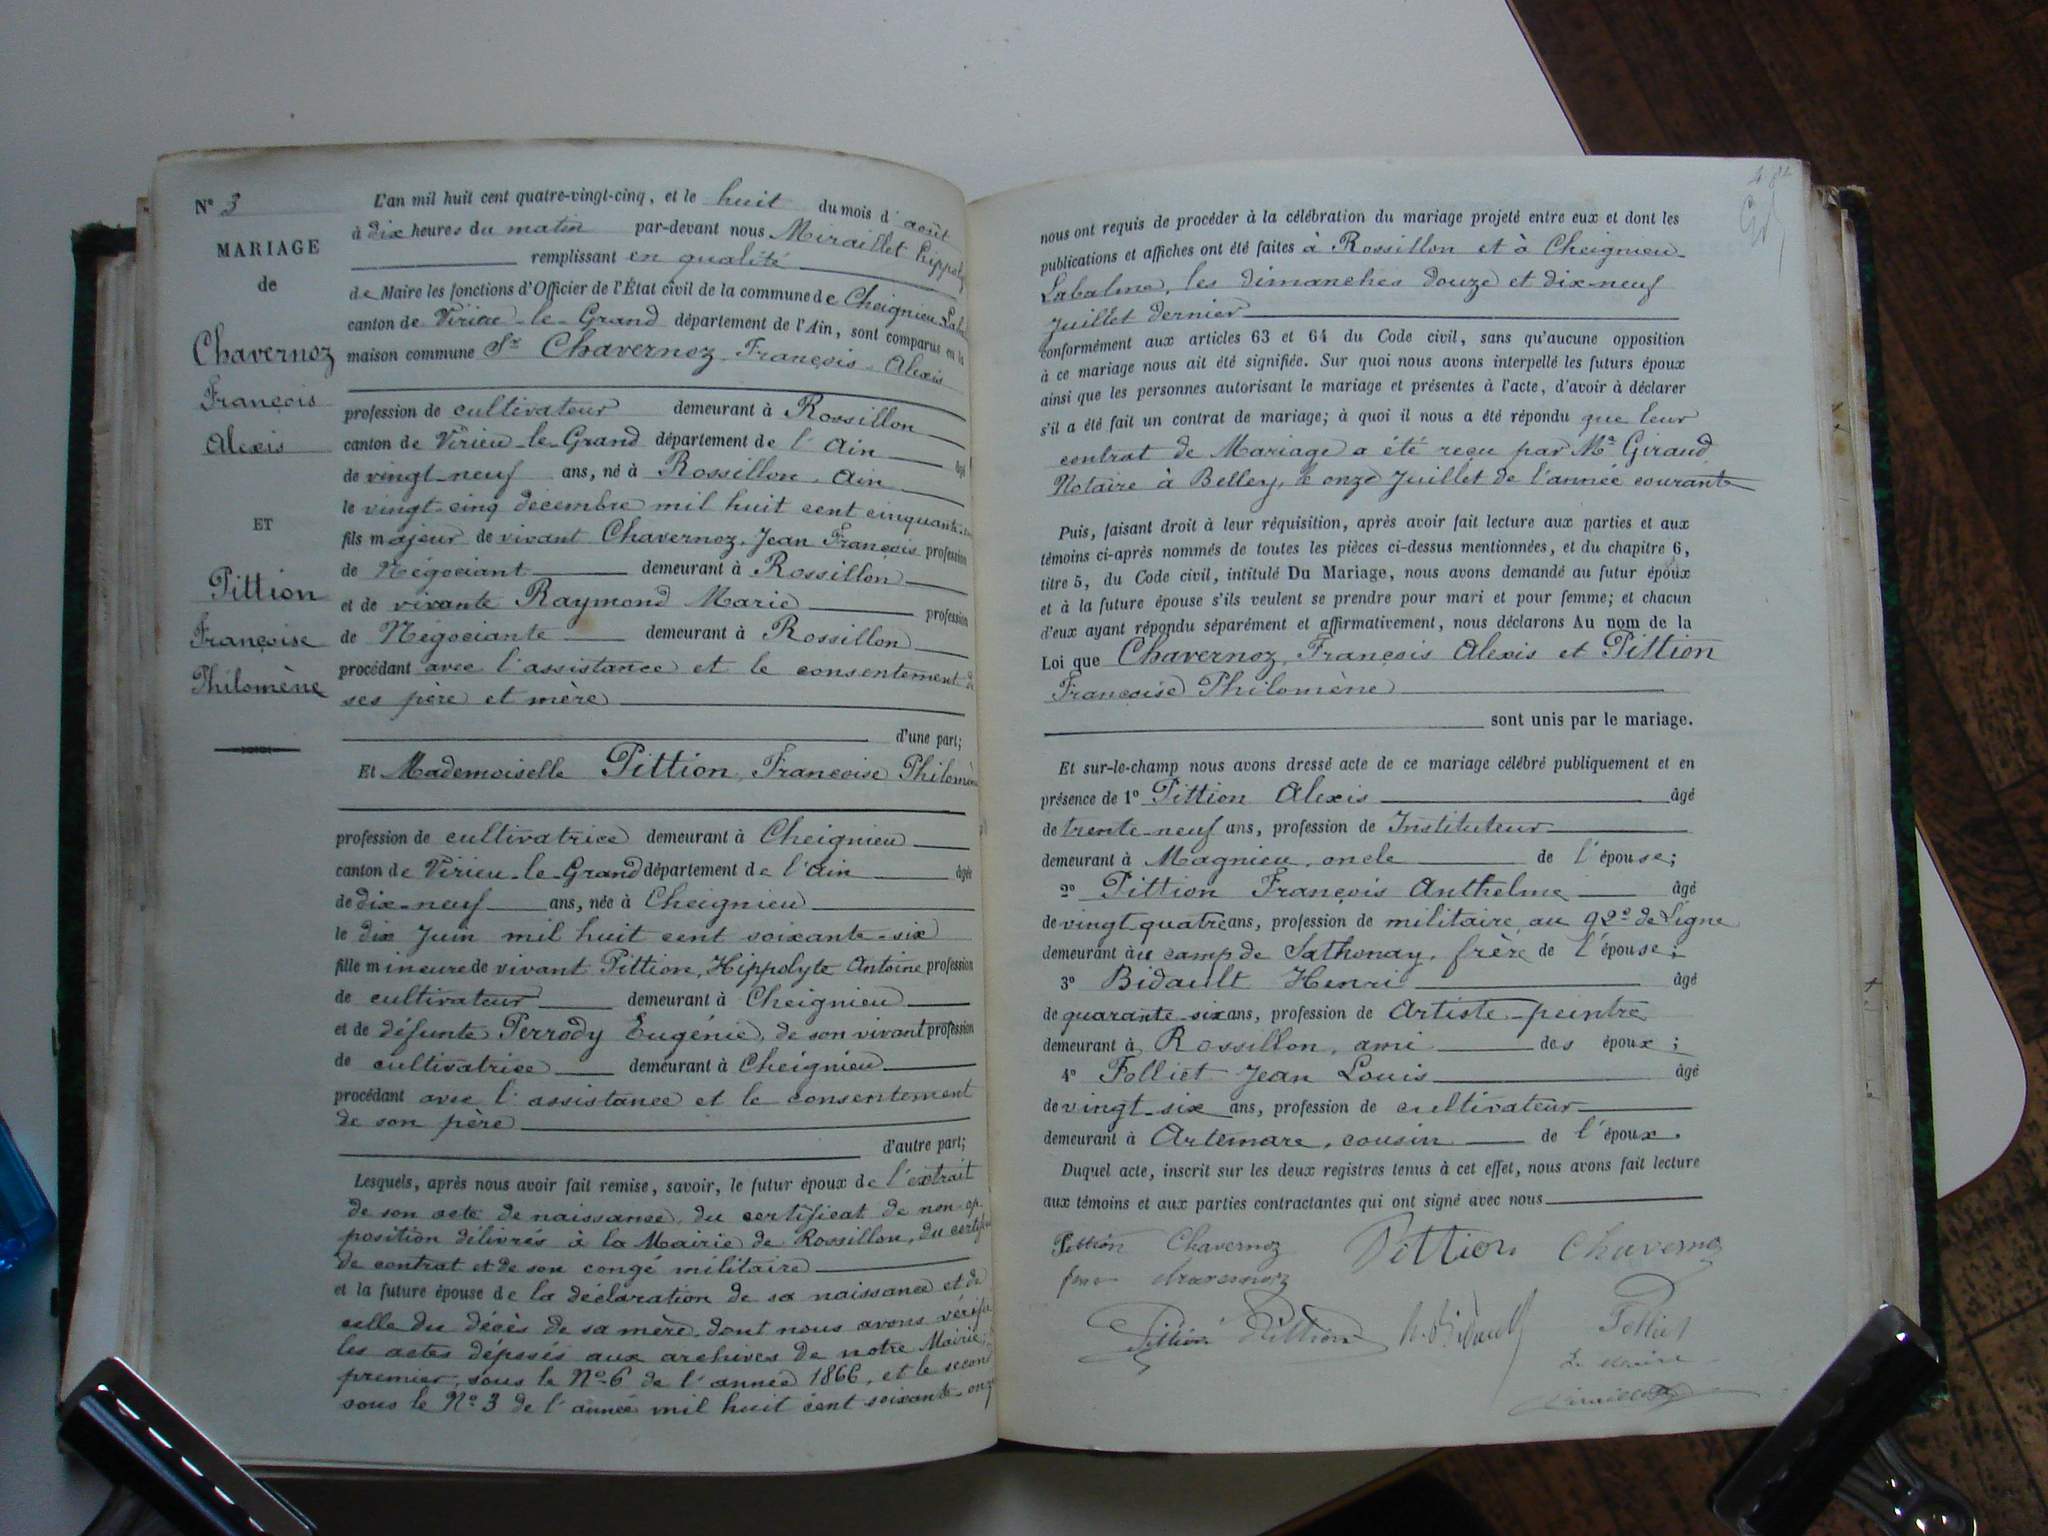 N° 3
MARIAGE
de
Chavernoz
François
Alexis
ET
Pittion
Françoise
Philomène
L'an mil huit cent quatre-vingt-cinq, et le huit du mois d'août
à dix heures du matin par-devant nous Miraillet Hippoly
remplissant en qualité
de Maire les fonctions d'Officier de l'État civil de la commune de Cheignieu-Laba
canton de Virieu-le-Grand département de l'Ain, sont comparus en la
maison commune Sr Chavernoz François-Alexis
profession de cultivateur demeurant à Rossillon
canton de Virieu-le-Grand département de l'Ain âgé
de vingt-neuf ans, né à Rossillon, Ain
le vingt-cinq decembre mil huit cent cinquante
fils majeur de vivant Chavernoz, Jean François profession
de Négociant demeurant à Rossillon
et de vivante Raymond Marie profession
de Négociante demeurant à Rossillon
procédant avec l'assistance et le consentement de
ses père et mère
d'une part;
Et Mademoiselle Pittion, Francoise Philomène
profession de cultivatrice demeurant à Cheignieu
canton de Virieu-le-Grand département de l'ain âgée
de dix-neuf ans, née à Cheignieu
le dix Juin mil huit cent soixante-six
fille mineure de vivant Pittion, Hippolyte Antoine profession
de cultivateur demeurant à Cheignieu
et de défunte Perrody Eugénie, de son vivant profession
de cultivatrice demeurant à Cheignieu
procédant avec l'assistance et le consentement
de son père
d'autre part;
Lesquels, après nous avoir fait remise, savoir, le futur époux de l'extrait
de son acte de naissance, du certificat de non-op-
position délivrés à la Mairie de Rossillon, du certifi
de contrat et de son congé militaire
et la future épouse de la déclaration de sa naissance et de
celle du décès de sa mère, dont nous avons vérifié
les actes déposés aux archives de notre Mairie;
premier, sous le N° 6 de l'année 1866, et le second
sous le N° 3 de l'année mil huit cent soixante-onze
nous ont requis de procéder à la célébration du mariage projeté entre eux et dont les
publications et affiches ont été faites à Rossillon et à Cheignieu-
Labalme, les dimanches douze et dix-neuf
Juillet dernier
conformément aux articles 63 et 64 du Code civil, sans qu'aucune opposition
à ce mariage nous ait été signifiée. Sur quoi nous avons interpellé les futurs époux
ainsi que les personnes autorisant le mariage et présentes à l'acte, d'avoir à déclarer
s'il a été fait un contrat de mariage; à quoi il nous a été répondu que leur
contrat de Mariage a été reçu par Me Giraud
Notaire à Belley, le onze Juillet de l'année courante
Puis, faisant droit à leur réquisition, après avoir fait lecture aux parties et aux
témoins ci-après nommés de toutes les pièces ci-dessus mentionnées, et du chapitre 6,
titre 5, du Code civil, intitulé Du Mariage, nous avons demandé au futur époux
et à la future épouse s'ils veulent se prendre pour mari et pour femme; et chacun
d'eux ayant répondu séparément et affirmativement, nous déclarons Au nom de la
Loi que Chavernoz, François Alexis et Pittion
Françoise Philomène
sont unis par le mariage.
Et sur-le-champ nous avons dressé acte de ce mariage célébré publiquement et en
présence de 1° Pittion Alexis âgé
de trente-neuf ans, profession de Instituteur
demeurant à Magnieu, oncle de l'épouse;
2° Pittion François Anthelme âgé
de vingt quatre ans, profession de militaire au 92e de Ligne
demeurant au camp de Sathonay, frère de l'épouse;
3° Bidault Henri âgé
de quarante-six ans, profession de Artiste-peintre
demeurant à Rossillon, ami des époux;
4° Folliet Jean Louis âgé
de vingt-six ans, profession de cultivateur
demeurant à Artemare, cousin de l'époux.
Duquel acte, inscrit sur les deux registres tenus à cet effet, nous avons fait lecture
aux témoins et aux parties contractantes qui ont signé avec nous
Pittion Chavernoz Pittion Chavernoz
chavernoz
Pittion Pittion h. Bidault Folliet
Le Maire
Miraillet